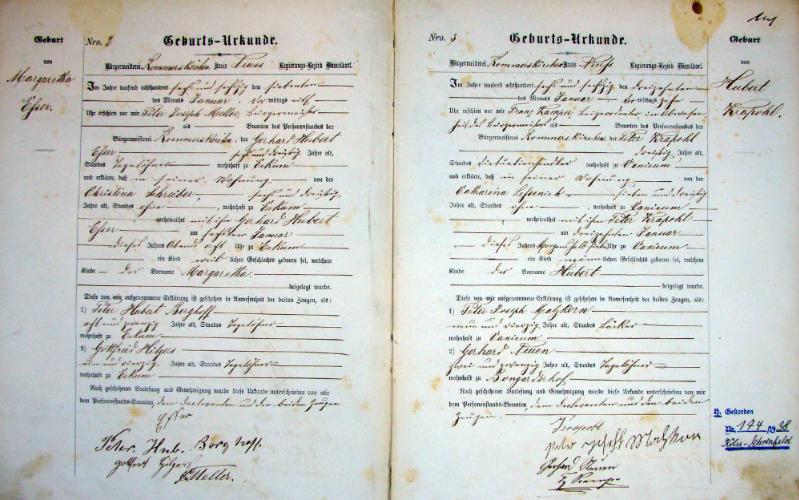 Geburt
von
Margaretha
Esser.
Nro. 2
Geburts-Urkunde.
Bürgermeisterei Rommerskirchen Kreis Neuss Regierungs-Bezirk Düsseldorf.
Im Jahre tausend achthundert sechs und sechzig den siebenten
des Monats Januar Vormittags elf
Uhr erschien vor mir Peter Joseph Müller Bürgermeister
als Beamten des Personenstandes der
Bürgermeisterei Rommerskirchen der Gerhard Hubert
Esser sechs und dreißig Jahre alt,
Standes Tagelöhner wohnhaft zu Eckum
und erklärte, daß in seiner Wohnung von der
Christina Schreiber, sechs und dreißig
Jahre alt, Standes ohne, wohnhaft zu Eckum
verheirathet mit ihm Gerhard Hubert
Esser am sechsten Januar
dieses Jahres Abends acht Uhr zu Eckum
ein Kind weiblichen Geschlechts geboren sei, welchem
Kinde der Vorname Margaretha
beigelegt wurde.
Diese von mir aufgenommene Erklärung ist geschehen in Anwesenheit der beiden Zeugen, als:
1) Peter Hubert Berghoff
acht und zwanzig Jahre alt, Standes Tagelöhner
wohnhaft zu Eckum
2) Gottfried Hilgers
und vierzig Jahre alt, Standes Tagelöhner
wohnhaft zu Eckum
Nach geschehener Vorlesung und Genehmigung wurde diese Urkunde unterschrieben von mir
dem Personenstands-Beamten, dem Declaranten und den beiden Zeugen
Esser
Peter Hub. Berghoff
Gottfried Hilgers
Müller.
Nro. 3
Geburts-Urkunde.
Bürgermeisterei Rommerskirchen Kreis Neuß Regierungs-Bezirk Düsseldorf.
Im Jahre tausend achthundert sechs und sechzig den dreizehnten
des Monats Januar Vormittags zehn
Uhr erschien vor mir Franz Kamper Beigeordneter in Abwesen-
heit des Bürgermeisters als Beamten des Personenstandes der
Bürgermeisterei Rommerskirchen der Peter Krapohl
dreißig Jahre alt,
Standes wohnhaft zu Vanicum
und erklärte, daß in seiner Wohnung von der
Catharina sieben und dreißig
Jahre alt, Standes ohne, wohnhaft zu Vanicum
verheirathet mit ihm Peter Krapohl
am dreizehnten Januar
dieses Jahres Morgens halb Uhr zu Vanicum
ein Kind männlichen Geschlechts geboren sei, welchem
Kinde der Vorname Hubert
beigelegt wurde.
Diese von mir aufgenommene Erklärung ist geschehen in Anwesenheit der beiden Zeugen, als:
1) Peter Joseph Malzkorn
neun und vierzig Jahre alt, Standes Bäcker
wohnhaft zu Vanicum
2) Gerhard Neuen
zwei und zwanzig Jahre alt, Standes Tagelöhner
wohnhaft zu Bongarderhof
Nach geschehener Vorlesung und Genehmigung wurde diese Urkunde unterschrieben von mir
dem Personenstands-Beamten, dem Declaranten und den beiden
Zeugen.
Krapohl
Peter Joseph Malzkorn
Gerhard Neuen
Kamper
Geburt
von
Hubert
Krapohl.
Gestorben
Nr. 174 1938
Köln-Ehrenfeld